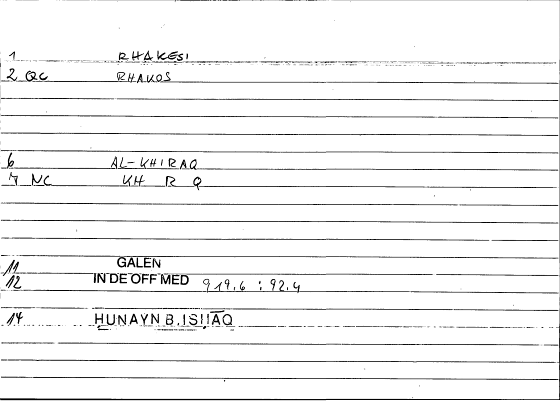 1 RHAKESI
2 QC RHAKOS
6 AL-KHIRAQ
7 NC KH R Q
11 GALEN
12 IN DE OFF MED 919.6 : 92.4
14 ḤUNAYN B.ISḤĀQ